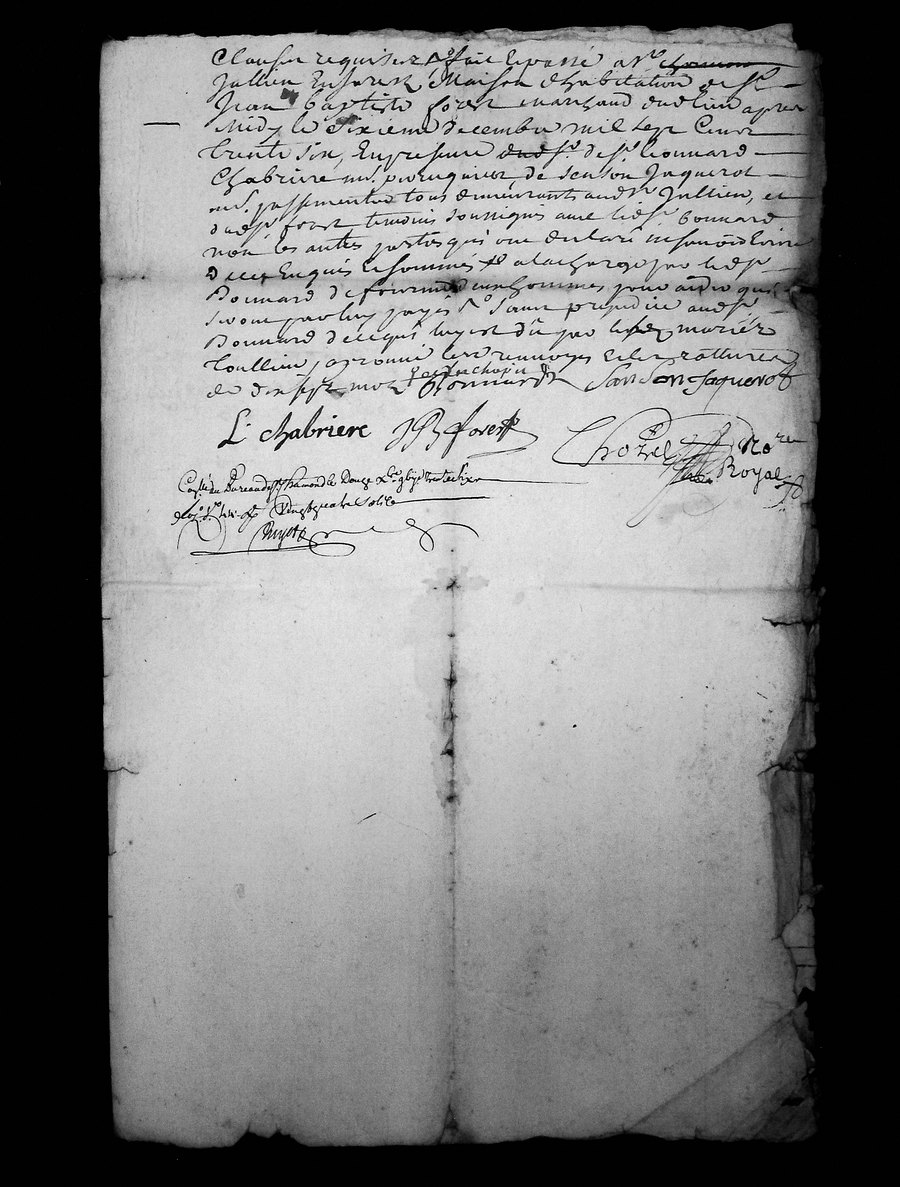 Clauses requises &c fait et passé a St chamon
Jullien En Jarest Maison d'habitation de Sr
Jean baptiste forest marchand dud. lieu apres
Midy le dixieme decembre mil sept Cent
trente Six, En presence dud. Sr. de Sr. Leonnard
Chabriere md. perruquier de Sanson Jaquerot
md. passementier tous demeurants aud. St Jullien, et
dud. Sr. forest temoins soussignés avec led. Sr. bonnard
non les autres parties qui ont declaré ne savoir Ecrire
de ce Enquis et sommés a la charge par led. Sr.
Bonnard de fournir des hommes pour aider qui
seront par luy payés & sans prejudice aud. Sr.
Bonnard de ce qui luy est dû par les mariéz
Toullieu, approuvé les renvoyes et les rattures
de dix sept mots Bonnard Sanson Jaquerot
L. chabriere JB forest
Chozel No.re Royal
Con.lé au Bureau de St. chamond le Douze Xbre gbijc trente six
Reçu vingt quatre sols